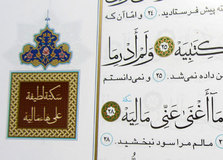 پیش فرستادید. ۲۴ و امّا آن که
كِتَٰبِيَهْ ٢٥ وَلَمْ أَدْرِ مَا
داده نمی‌شد. ۲۵ و نمی‌دانستم
مَآ أَغْنَىٰ عَنِّى مَالِيَهْ ٢٨
مالم مرا سود نبخشید. ۲۸
سكتة لطيفة
على هاء ماليه